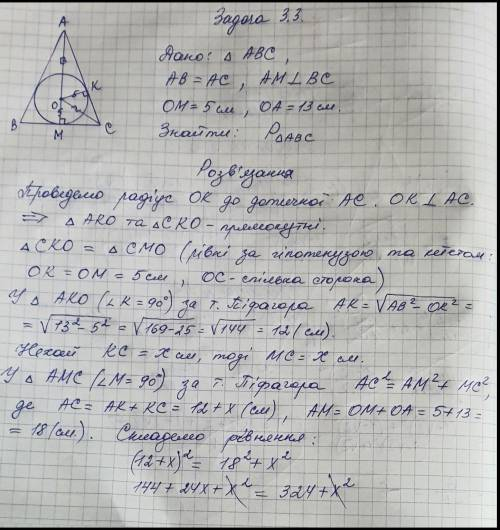 Задача 3.3.
A
K
O
B
M
C
Дано: △ ABC,
AB = AC, AM ⊥ BC
OM = 5 см, OA = 13 см.
Знайти: P△ABC
Розв'язання
Проведемо радіус OK до дотичної AC. OK ⊥ AC.
⇒ △ AKO та △ CKO - прямокутні.
△ CKO = △ CMO (рівні за гіпотенузою та катетом:
OK = OM = 5 см, OC - спільна сторона)
У △ AKO (∠K = 90°) за т. Піфагора AK = √AB² - OK² =
= √13² - 5² = √169 - 25 = √144 = 12 (см).
Нехай KC = x см, тоді MC = x см.
У △ AMC (∠M = 90°) за т. Піфагора AC² = AM² + MC²,
де AC = AK + KC = 12 + x (см), AM = OM + OA = 5 + 13 =
= 18 (см). Складемо рівняння:
(12 + x)² = 18² + x²
144 + 24x + x² = 324 + x²